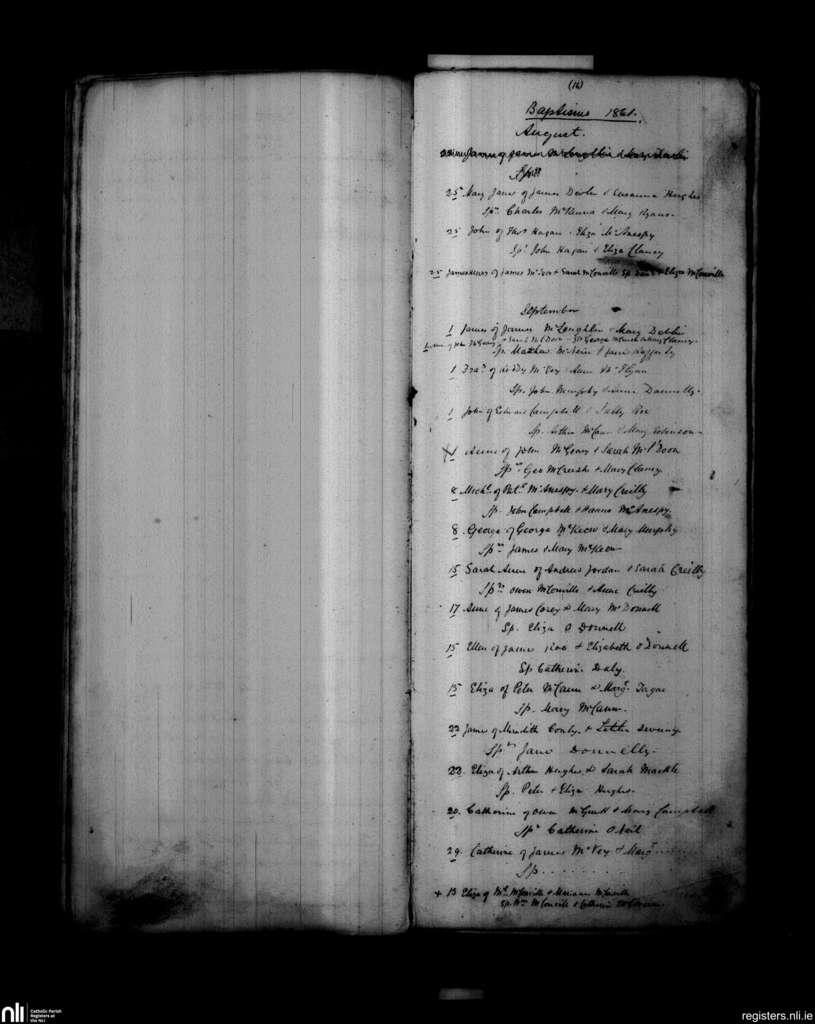 (16)
Baptisms 1861.
August.
James of James McLoughlin & Mary
Sp
25 Mary Jane of James Devlin & Susanna Hughes
Sprs Charles McKenna & Mary
25 John of Thos Hagan & Eliza McAnespy
Sps John Hagan & Eliza Clancy
25 James of James & Sarah McConville Sp & Eliza McConville
September
1 James of James McLoughlin & Mary Devlin
of John McGeary & Sarah Sp George & Mary Clancy
Sp. Mathew McNeice & Jane Rafferty
1 of McVey & Anne
Sp. John Murphy & Donnelly.
1 John of Edward Campbell &
Sp. Arthur McCann & Mary Robinson
1 Anne of John McGeary & Sarah
Sprs Geo McCreesh & Mary Clancy
8 Michl of Patk McAnespy & Mary Creilly
Sp. John Campbell & Hanna McAnespy
8. George of George McKeow & Mary Murphy
Sprs James & Mary McKeow
15 Sarah Anne of Andrew Jordan & Sarah Creilly
Sprs Owen McConville & Anne Creilly
17 Anne of James Corey & Mary McDonnell
Sp. Eliza O Donnell
15 Ellen of James & Elizabeth O'Donnell
Sp Catherine Daly.
15 Eliza of Peter McCann & Margt
Sp. Mary McCann.
22 Jane of Meredith Conly & Letitia Sweeny
Sprs Jane Donnelly.
22. Eliza of Arthur Hughes & Sarah Mackle
Sp. Peter & Eliza Hughes.
20. Catherine of Owen & Mary Campbell
Spr Catherine O Neil
29. Catherine of James McVey & Margt
Sp. . . . . . . . .
+ 13 Eliza of Wm McConville & Marianne McConville
Sp. Wm McConville & Catherine
nli
Catholic Parish
Registers at
the NLI
registers.nli.ie